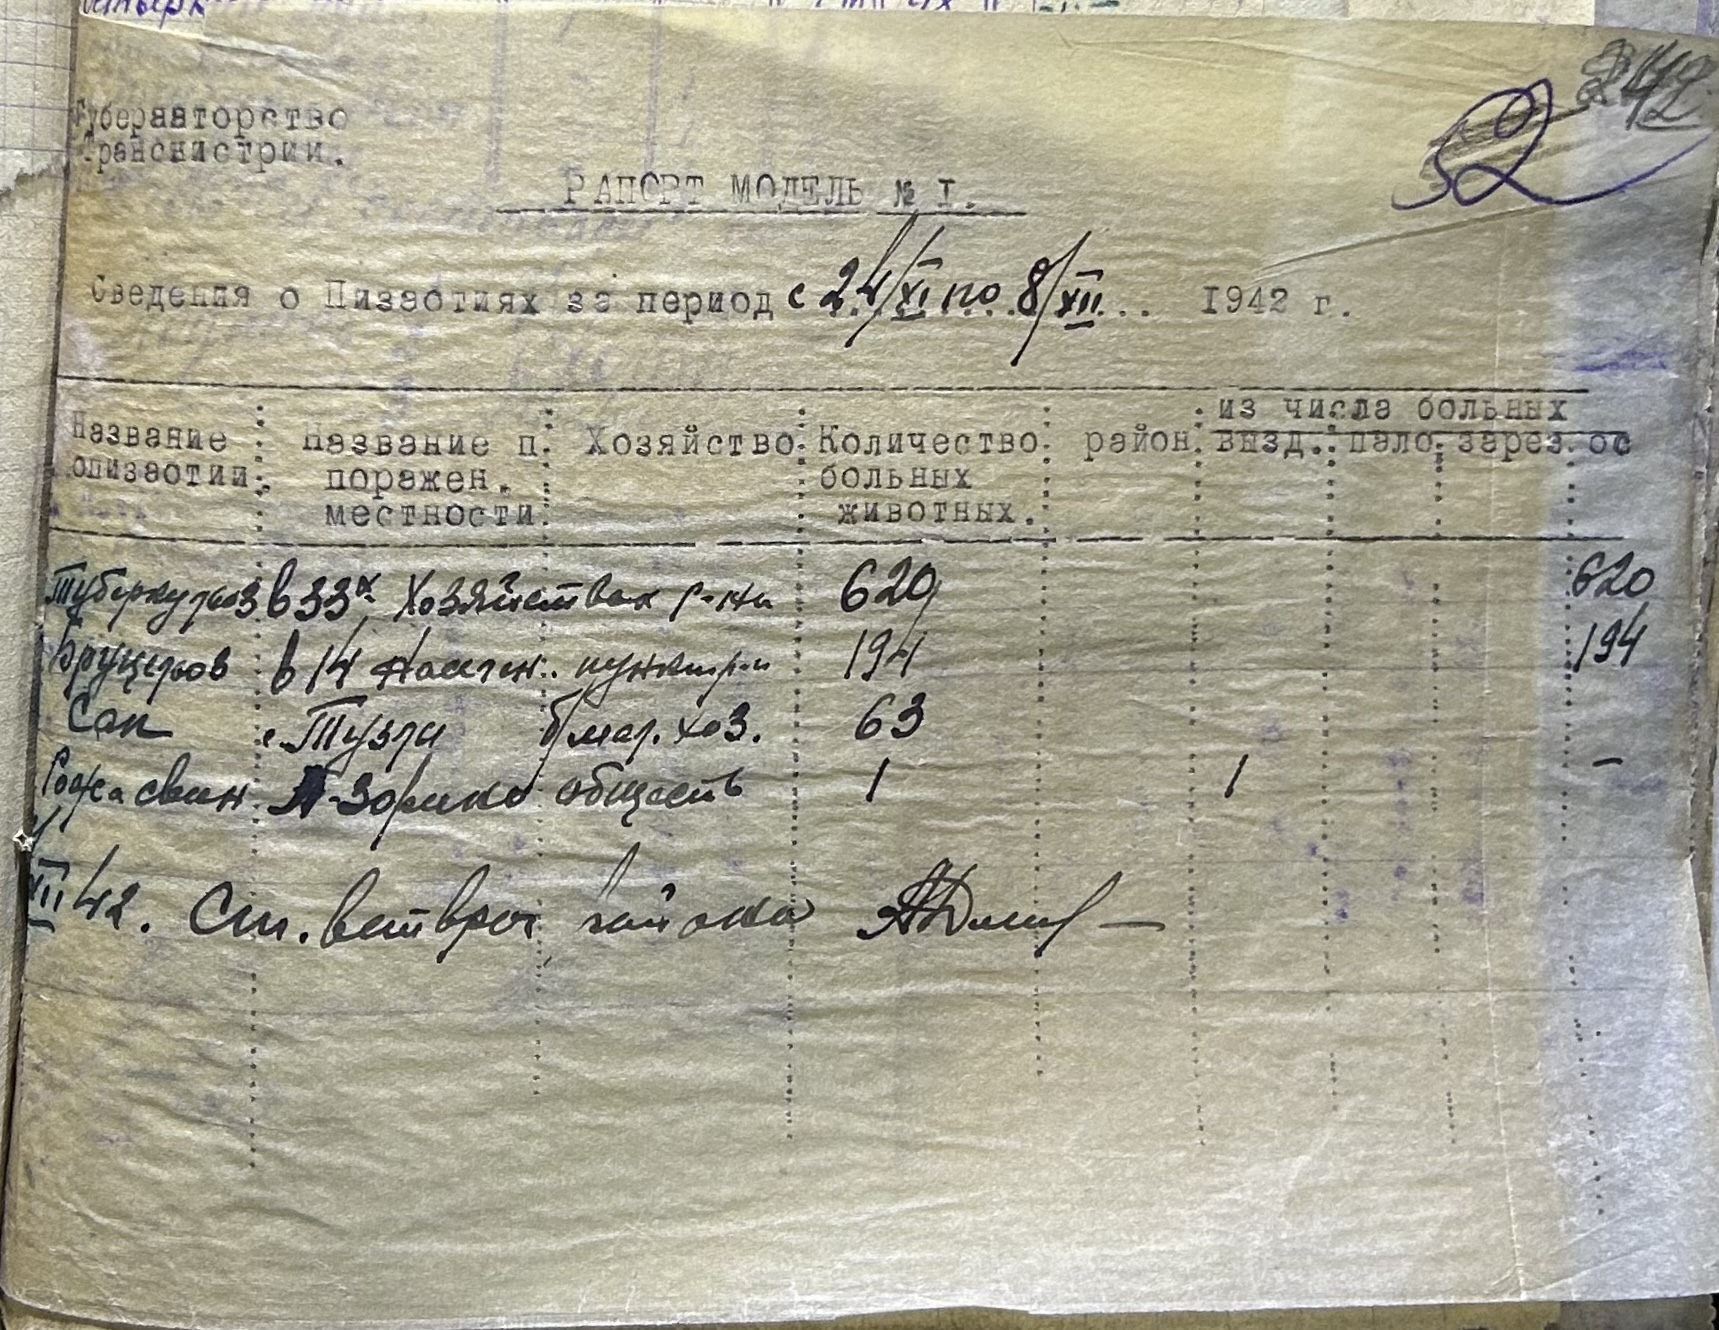 Губернаторство
Транснистрии.
РАПОРТ МОДЕЛЬ № I.
Сведения о Пизаотиях за период с 24/XI по 8/XII... 1942 г.
из числа больных
Название Название п. Хозяйство Количество район. вызд. пало зарез. ос
опизаотии. поражен. больных
местности. животных.
Туберкулоз в 33х Хозяйствах р-на 620 620
Бруцелоз в 14 населен. пункт. р-н 194 194
Сап с. Тузлы б/мол. хоз. 63
Рожа свин. обществ 1 1 -
XII 42. Ст. ветврач района